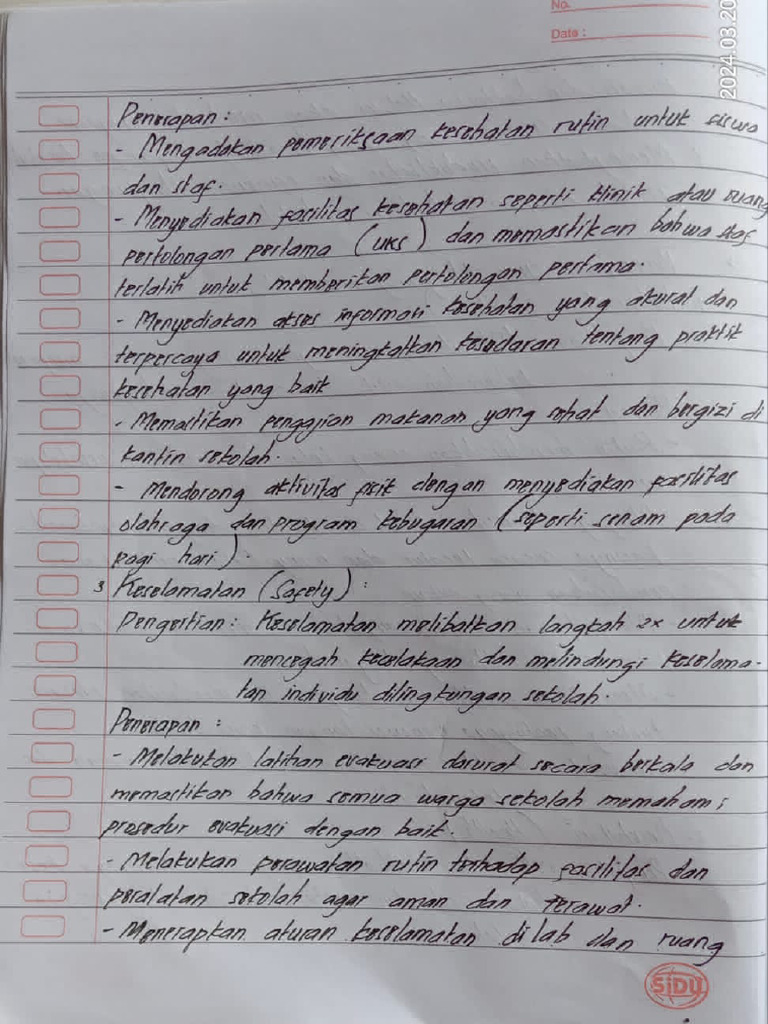 No.
Date :
2024.03.20
Penerapan :
- Mengadakan pemeriksaan kesehatan rutin untuk siswa
dan staf.
- Menyediakan fasilitas kesehatan seperti klinik atau ruang
pertolongan pertama (UKS) dan memastikan bahwa staf
terlatih untuk memberikan pertolongan pertama.
- Menyediakan akses informasi kesehatan yang akurat dan
terpercaya untuk meningkatkan kesadaran tentang praktik
kesehatan yang baik
- Memastikan pengajian makanan yang sehat dan bergizi di
kantin sekolah.
- Mendorong aktivitas fisik dengan menyediakan fasilitas
olahraga dan program kebugaran (seperti senam pada
pagi hari).
3 Keselamatan (Safety) :
Pengertian : Keselamatan melibatkan langkah 2x untuk
mencegah kecelakaan dan melindungi keselama-
tan individu dilingkungan sekolah.
Penerapan :
- Melakukan latihan evakuasi darurat secara berkala dan
memastikan bahwa semua warga sekolah memahami
prosedur evakuasi dengan baik.
- Melakukan perawatan rutin terhadap fasilitas dan
peralatan sekolah agar aman dan terawat.
- Menerapkan aturan keselamatan di lab dan ruang
SiDU